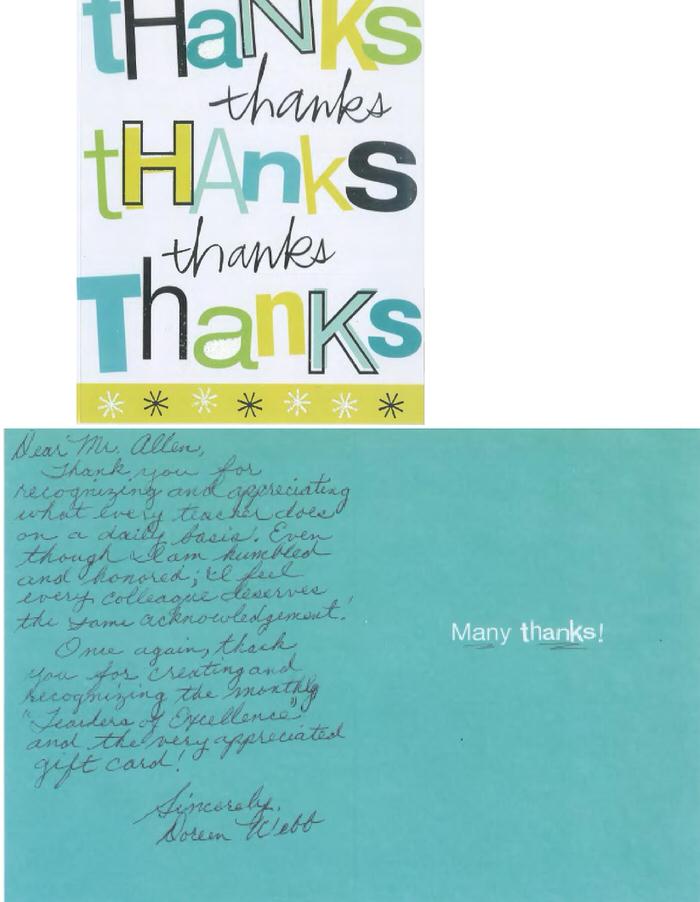 tHaNKs
thanks
tHAnKs
thanks
ThanKs
Dear Mr. Allen,
Thank you for
recognizing and appreciating
what every teacher does
on a daily basis. Even
though I am humbled
and honored; I feel
every colleague deserves
the same acknowledgement!
Once again, thank
you for creating and
recognizing the monthly
"Teachers of Excellence"
and the very appreciated
gift card!
Sincerely,
Doreen Webb
Many thanks!